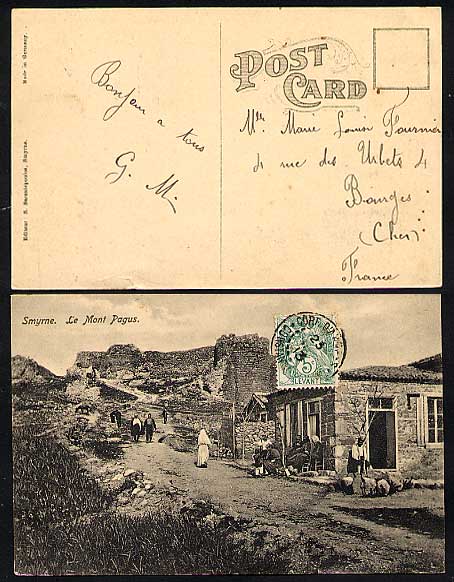 Made in Germany.
Editeur: S. Smyrne.
POST
CARD
Bonjour a tous
G. M.
Mlle Marie Louise Fournier
4 rue des 4
Bourges
(Cher)
France
Smyrne. Le Mont Pagus.
CORR. D'
23
5
LEVANT